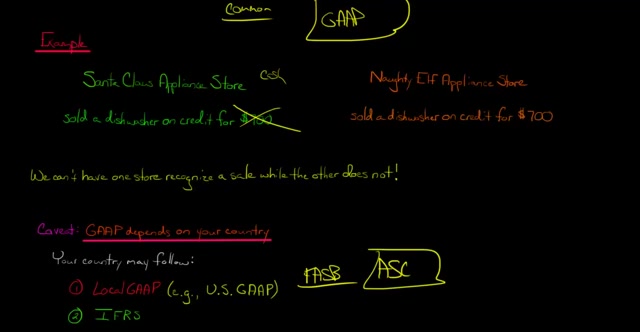 Common GAAP
Example
Santa Claus Appliance Store cash
sold a dishwasher on credit for $700
Naughty Elf Appliance Store
sold a dishwasher on credit for $700
We can't have one store recognize a sale while the other does not!
Caveat: GAAP depends on your country
Your country may follow:
① Local GAAP (e.g., U.S. GAAP)
FASB ASC
② IFRS